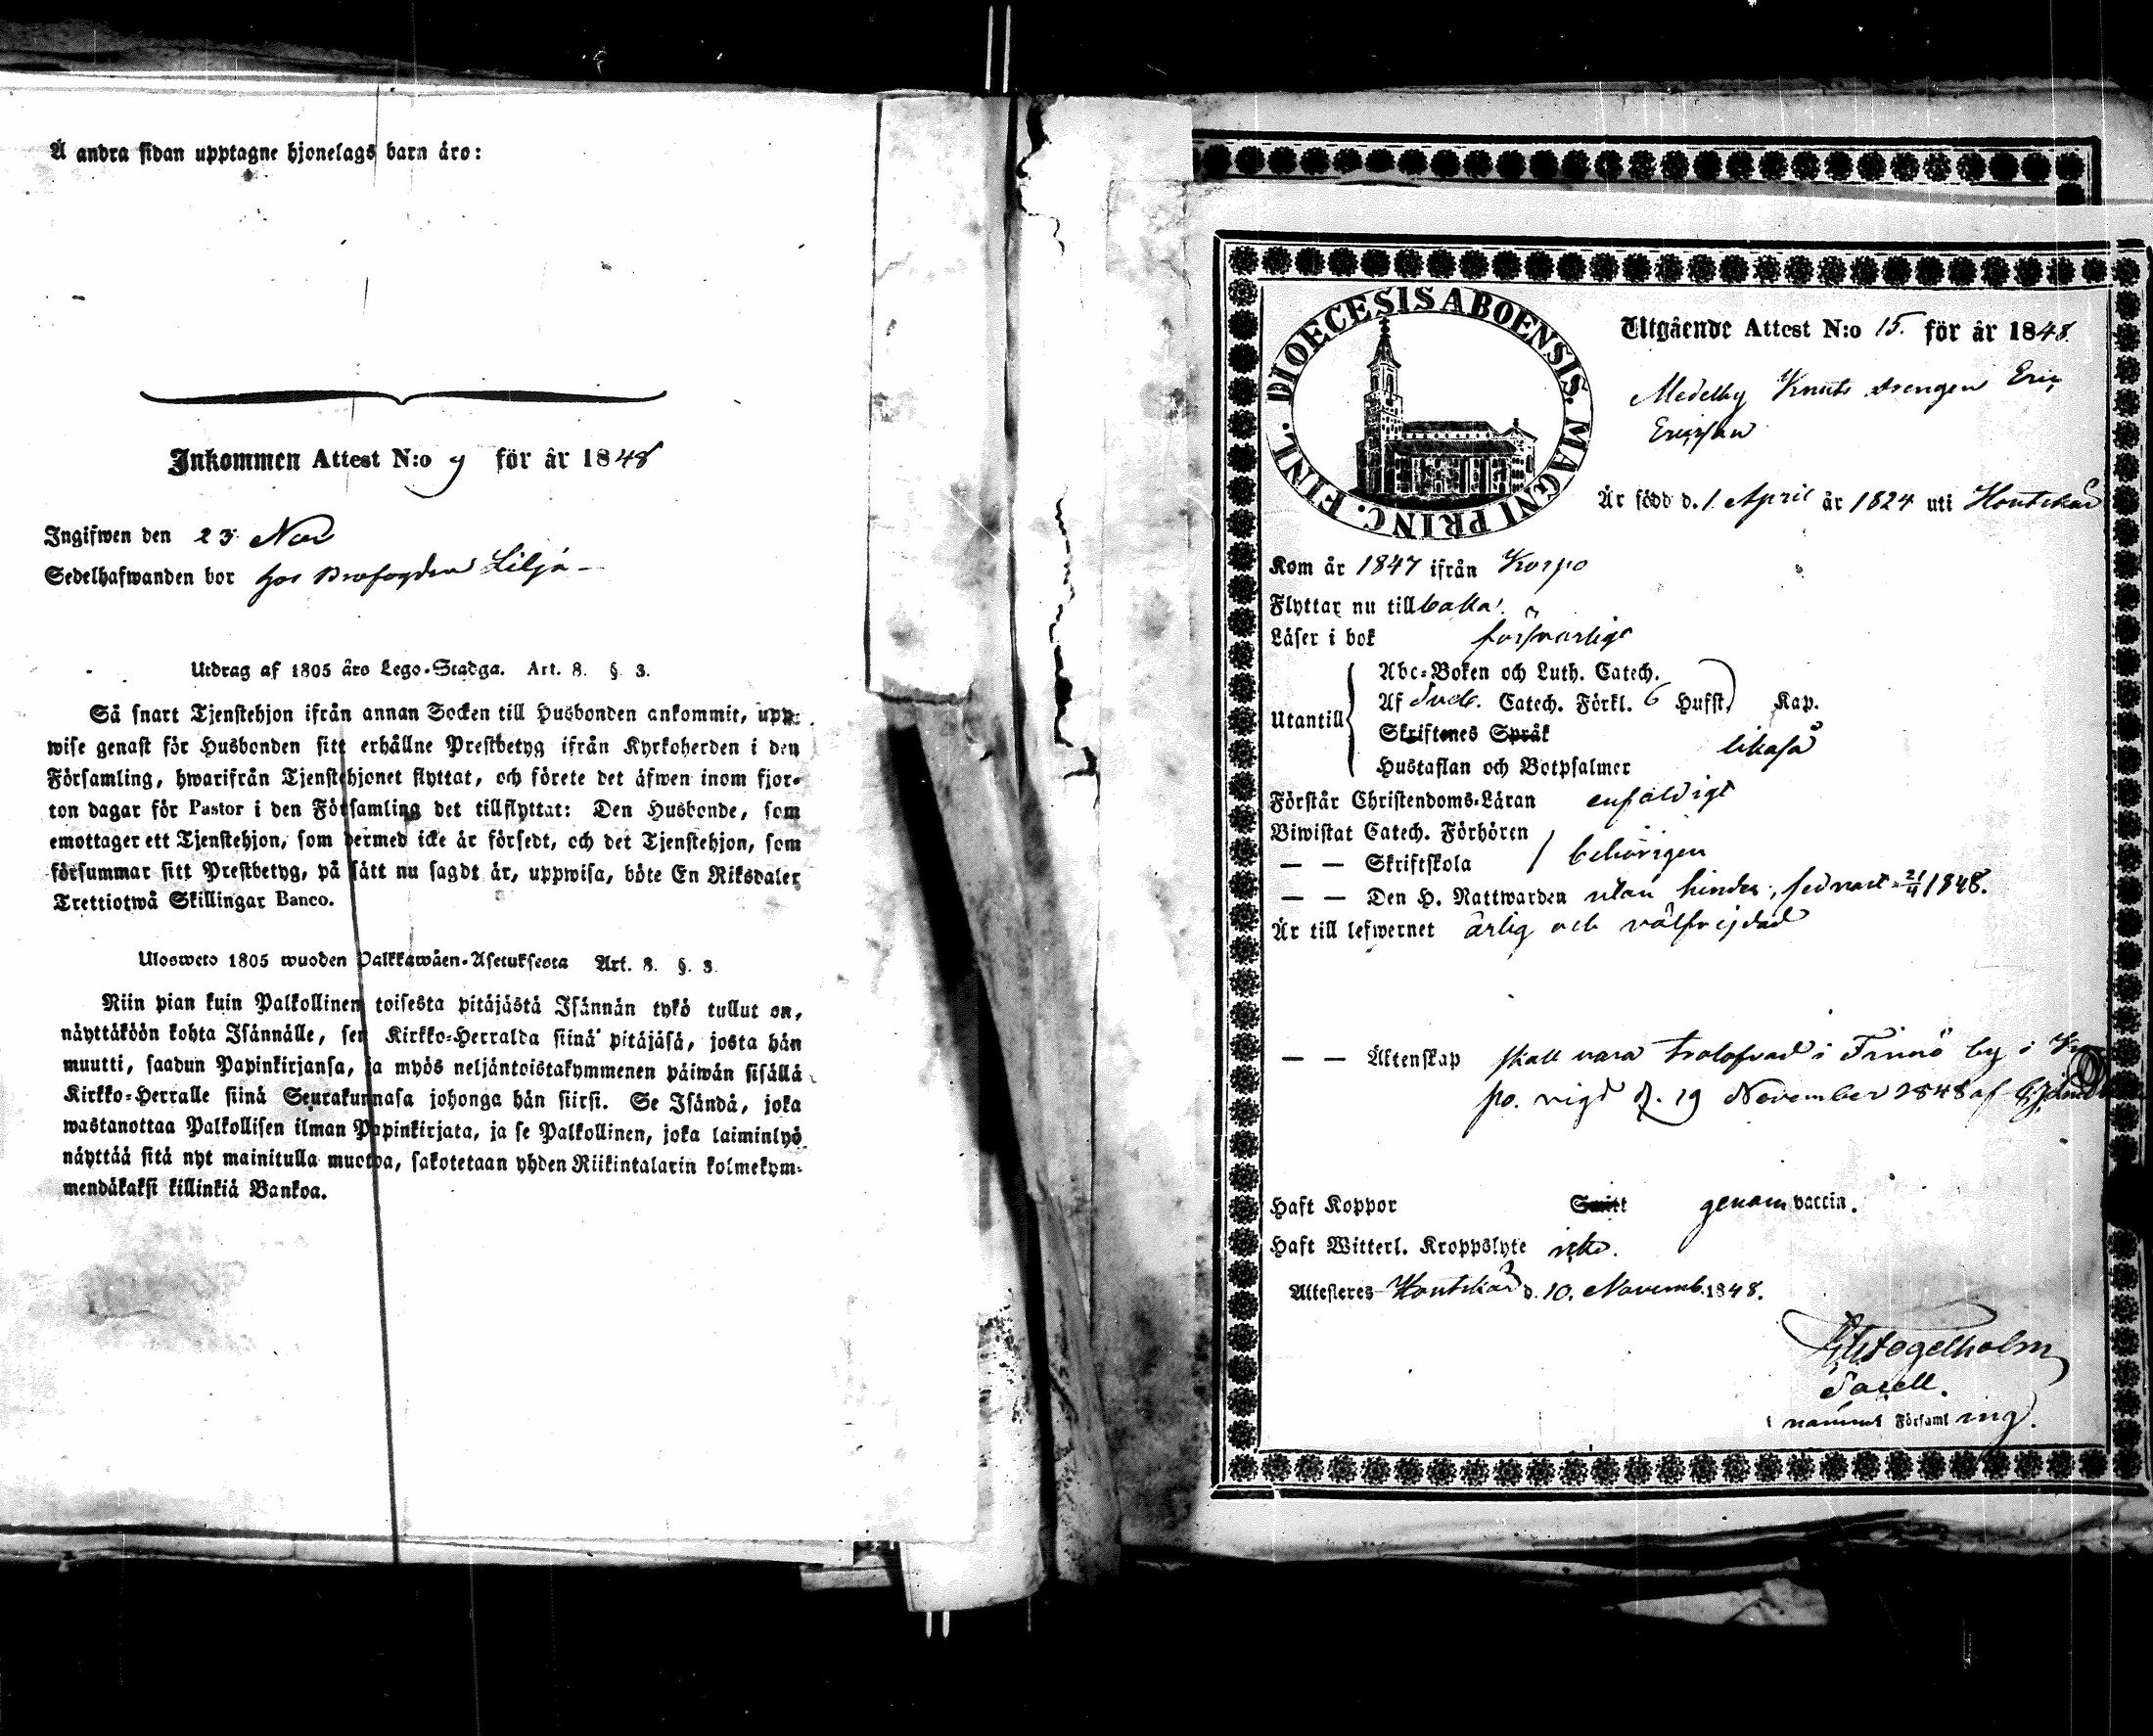 Å andra sidan upptagne hjonelags barn äro:
Inkommen Attest N:o 9 för år 1848
Ingifwen den 23 Nov
Sedelhafwanden bor hos Brofogden Lilja
Utdrag af 1805 års Lego-Stadga. Art. 8. §. 3.
Så snart Tjenstehjon ifrån annan Socken till Husbonden ankommit, upp-
wise genast för Husbonden sitt erhållne Prestbetyg ifrån Kyrkoherden i den
Församling, hwarifrån Tjenstehjonet flyttat, och förete det äfwen inom fjor-
ton dagar för Pastor i den Församling det tillflyttat: Den Husbonde, som
emottager ett Tjenstehjon, som dermed icke är försedt, och det Tjenstehjon, som
försummar sitt Prestbetyg, på sätt nu sagdt är, uppwisa, böte En Riksdaler
Trettiotwå Skillingar Banco.
Ulosweto 1805 wuoden Palkkawäen-Asetuksesta Art. 8. §. 3.
Niin pian kuin Palkollinen toisesta pitäjästä Isännän tykö tullut on,
näyttäköön kohta Isännälle, sen Kirkko-Herralda siinä pitäjäsä, josta hän
muutti, saadun Papinkirjansa, ja myös neljäntoistakymmenen päiwän sisällä
Kirkko-Herralle siinä Seurakunnasa johonga hän siirsi. Se Isändä, joka
wastanottaa Palkollisen ilman Papinkirjata, ja se Palkollinen, joka laiminlyö
näyttää sitä nyt mainitulla muotoa, sakotetaan yhden Riikintalarin kolmekym-
mendäkaksi killinkiä Bankoa.
DIOECESIS ABOENSIS. MAGNI PRINC. FINL.
Utgående Attest N:o 15. för år 1848
Medelby Knuts drengen Eric
Ericsson
Är född d. 1 April år 1824 uti Houtskär
Kom år 1847 ifrån Korpo
Flyttar nu tillbaka.
Läser i bok försvarligt
Abc-Boken och Luth. Catech.
Utantill Af Sveb. Catech. Förkl. 6 Hufst. Kap.
Skriftenes Språk
likaså
Hustaflan och Botpsalmer
Förstår Christendoms-Läran enfaldigt
Biwistat Catech. Förhören
— — Skriftskola behörigen
— — Den H. Nattwarden utan hinder, sednast 21/4 1848.
Är till lefwernet ärlig och välfrejdad
— — Äktenskap skall vara trolofvad i Finnö by i Kor
po. vigd d. 19 November 1848 af
Haft Koppor Smitt genom vaccin.
Haft Witterl. Kroppslyte icke.
Attesteres Houtskär d. 10. Novemb. 1848.
Fogelholm
Sacell.
i nämnd Församling.